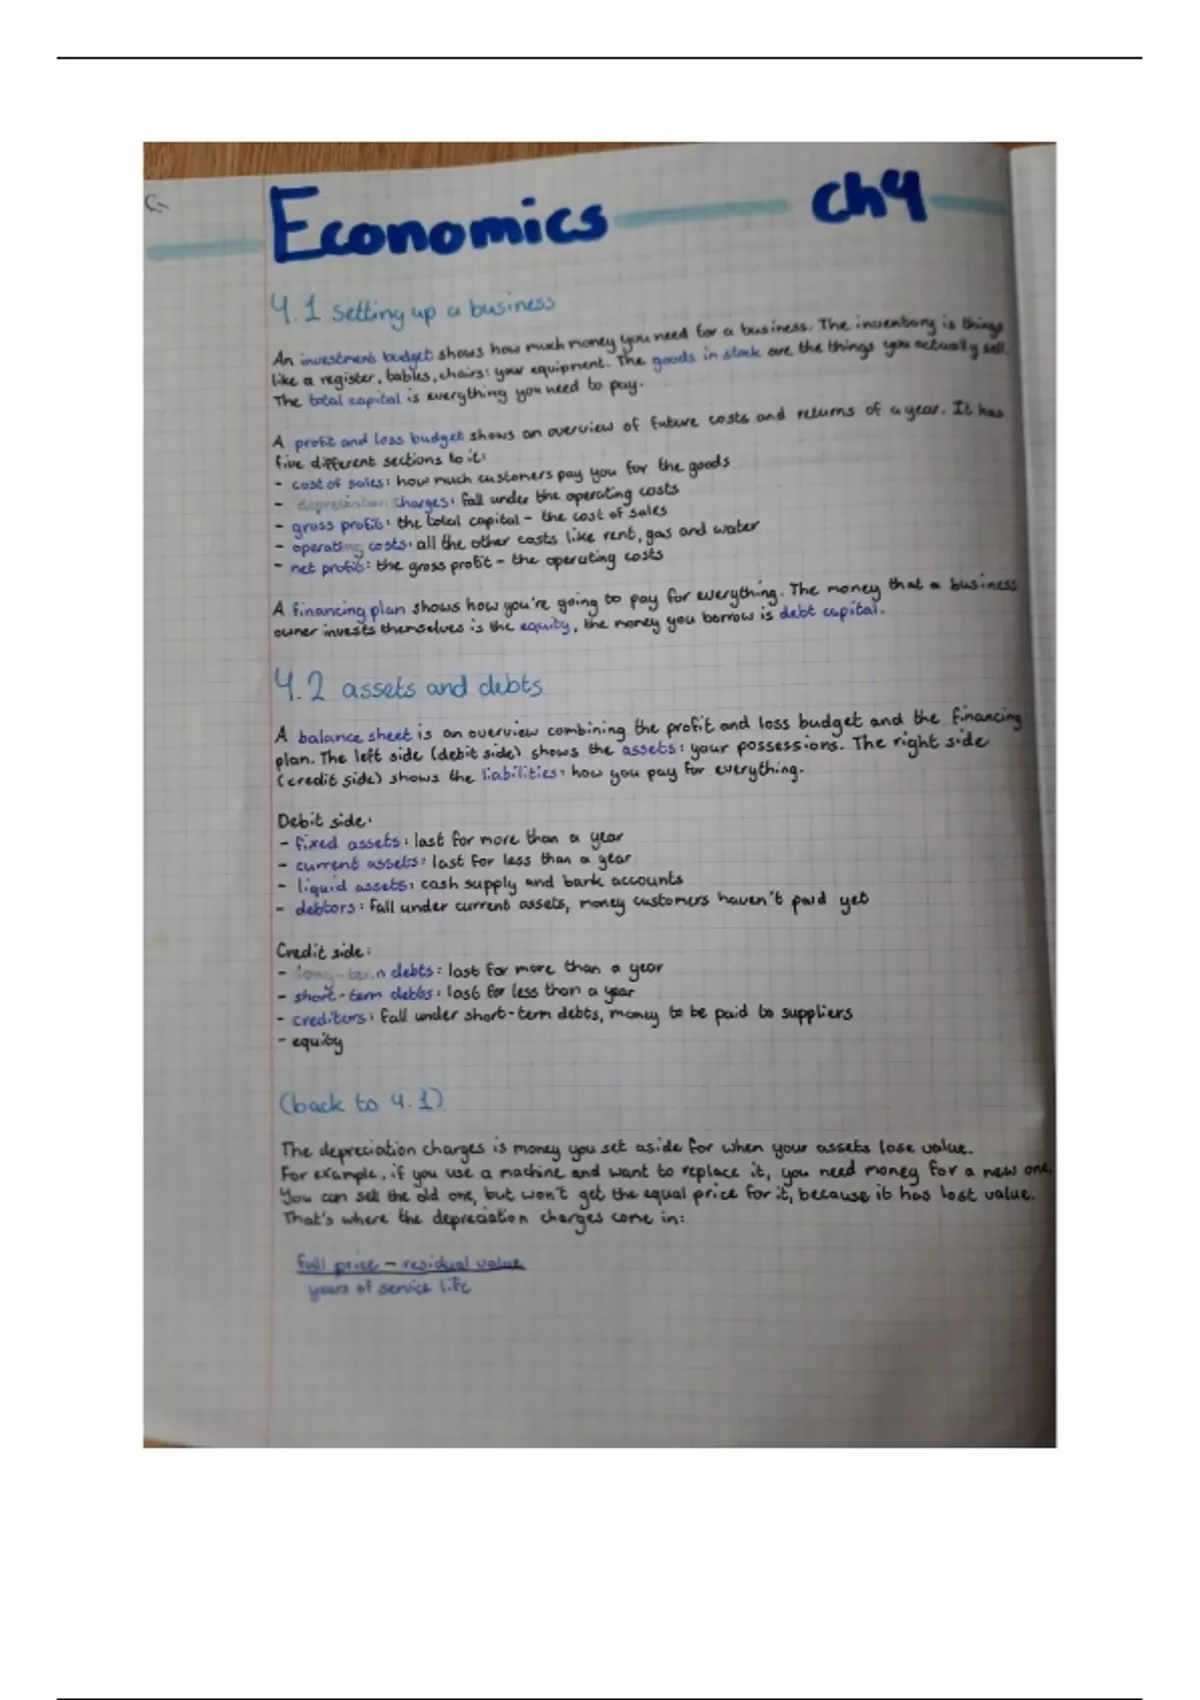 Economics ch4
4.1 setting up a business
An investment budget shows how much money you need for a business. The inventory is things
like a register, tables, chairs: your equipment. The goods in stock are the things you actually sell.
The total capital is everything you need to pay.
A profit and loss budget shows an overview of future costs and returns of a year. It has
five different sections to it:
- cost of sales: how much customers pay you for the goods
- depreciation charges: fall under the operating costs
- gross profit: the total capital - the cost of sales
- operating costs: all the other costs like rent, gas and water
- net profit: the gross profit - the operating costs
A financing plan shows how you're going to pay for everything. The money that a business
owner invests themselves is the equity, the money you borrow is debt capital.
4.2 assets and debts
A balance sheet is an overview combining the profit and loss budget and the financing
plan. The left side (debit side) shows the assets: your possessions. The right side
(credit side) shows the liabilities: how you pay for everything.
Debit side:
- fixed assets: last for more than a year
- current assets: last for less than a year
- liquid assets: cash supply and bank accounts
- debtors: fall under current assets, money customers haven't paid yet
Credit side:
- long-term debts: last for more than a year
- short-term debts: last for less than a year
- creditors: fall under short-term debts, money to be paid to suppliers
- equity
(back to 4.1)
The depreciation charges is money you set aside for when your assets lose value.
For example, if you use a machine and want to replace it, you need money for a new one.
You can sell the old one, but won't get the equal price for it, because it has lost value.
That's where the depreciation charges come in:
full price - residual value
years of service life